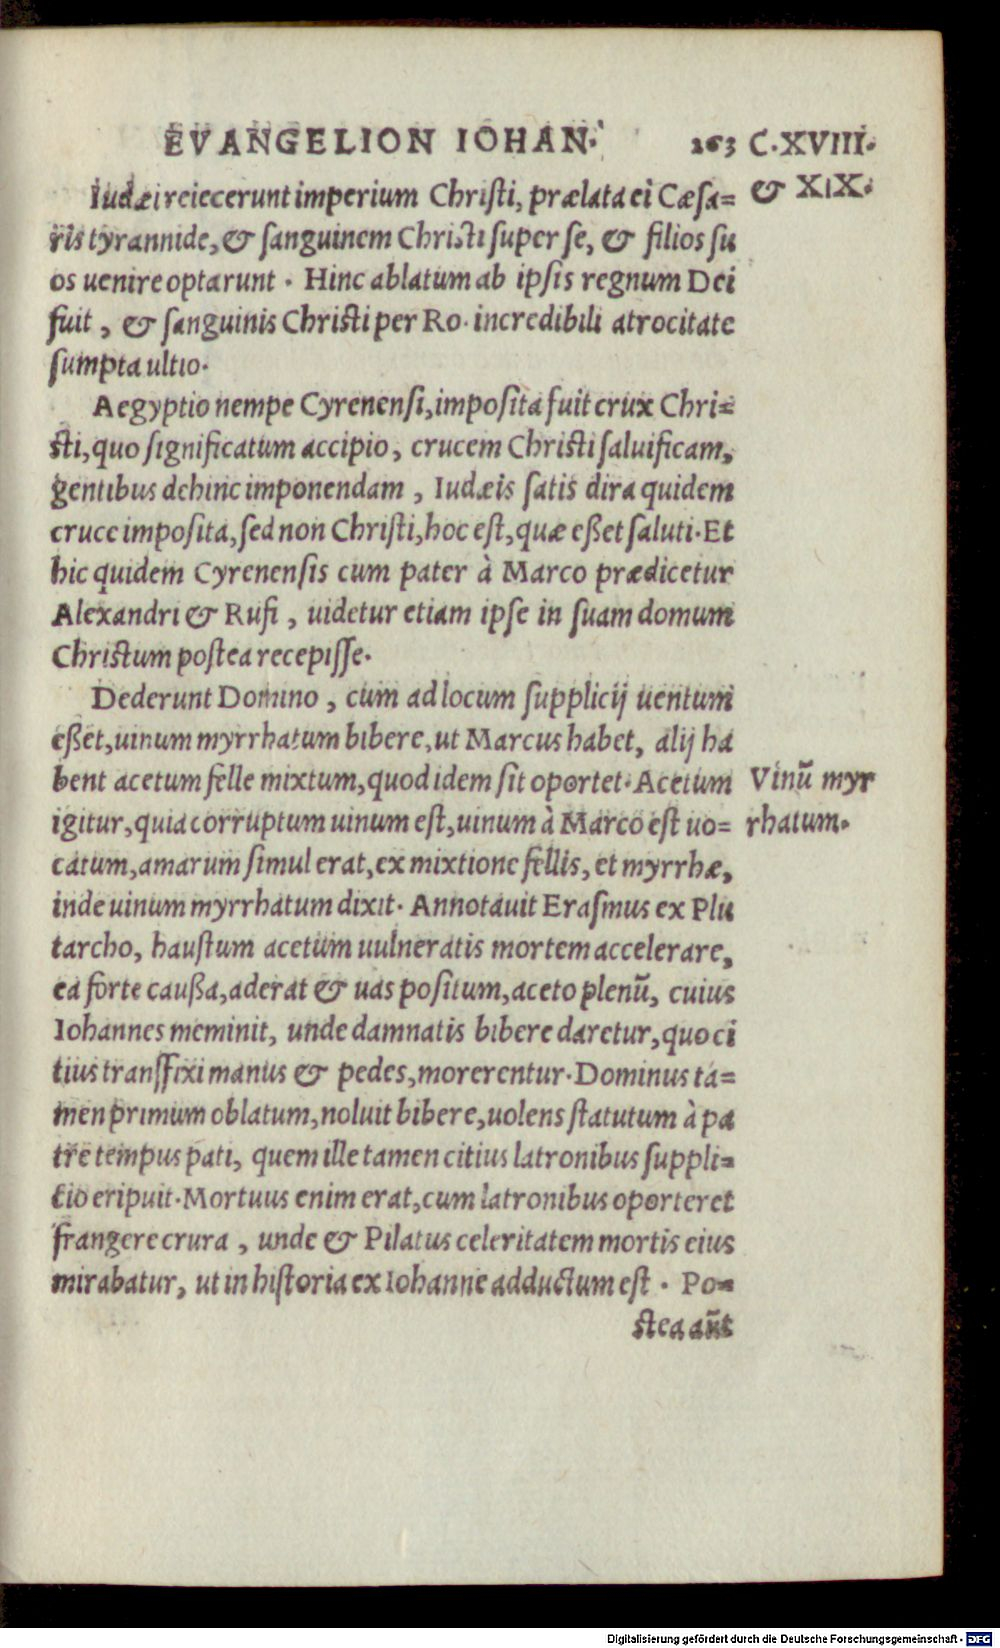 EVANGELION IOHAN. 263 C.XVIII.
& XIX.
Iudæi reiecerunt imperium Christi, prælata ei Cæsa=
ris tyrannide, & sanguinem Christi super se, & filios su
os uenire optarunt. Hinc ablatum ab ipsis regnum Dei
fuit, & sanguinis Christi per Ro. incredibili atrocitate
sumpta ultio.
Aegyptio nempe Cyrenensi, imposita fuit crux Chri=
sti, quo significatum accipio, crucem Christi saluificam,
gentibus dehinc imponendam, Iudæis satis dira quidem
cruce imposita, sed non Christi, hoc est, quæ eßet saluti. Et
hic quidem Cyrenensis cum pater à Marco prædicetur
Alexandri & Rufi, uidetur etiam ipse in suam domum
Christum postea recepisse.
Dederunt Domino, cum ad locum supplicij uentum
eßet, uinum myrrhatum bibere, ut Marcus habet, alij ha
bent acetum felle mixtum, quod idem sit oportet. Acetum
igitur, quia corruptum uinum est, uinum à Marco est uo=
catum, amarum simul erat, ex mixtione fellis, et myrrhæ,
inde uinum myrrhatum dixit. Annotauit Erasmus ex Plu
tarcho, haustum acetum uulneratis mortem accelerare,
ea forte caußa, aderat & uas positum, aceto plenū, cuius
Iohannes meminit, unde damnatis bibere daretur, quo ci
tius transfixi manus & pedes, morerentur. Dominus ta=
men primum oblatum, noluit bibere, uolens statutum à pa
tre tempus pati, quem ille tamen citius latronibus suppli=
tio eripuit. Mortuus enim erat, cum latronibus oporteret
frangere crura, unde & Pilatus celeritatem mortis eius
mirabatur, ut in historia ex Iohanne adductum est. Po=
stea aūt
Vinū myr
rhatum.
Digitalisierung gefördert durch die Deutsche Forschungsgemeinschaft - DFG